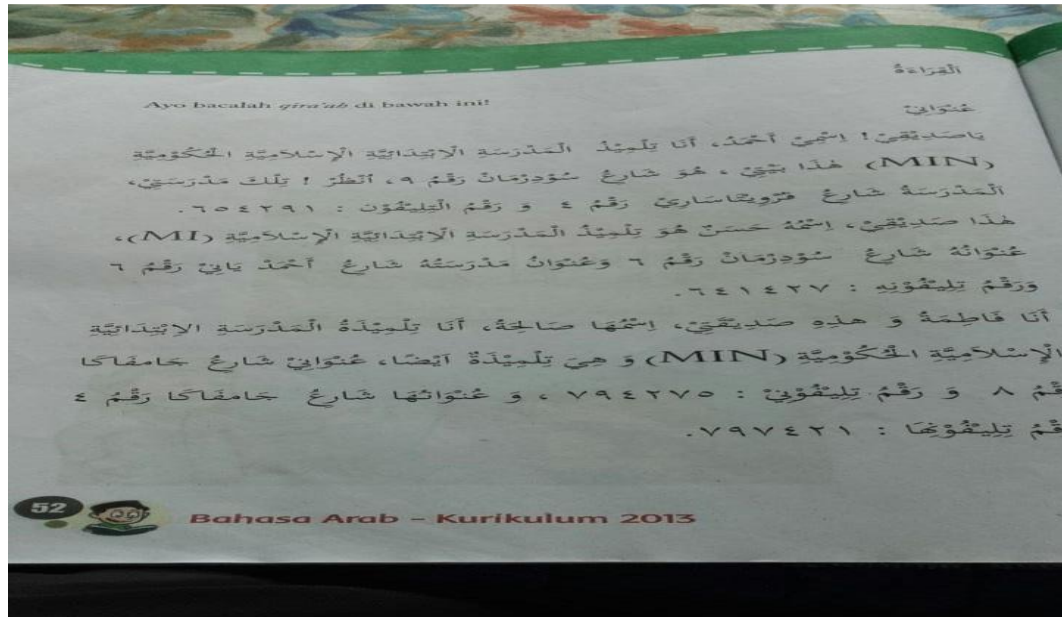 اَلْقِرَاءَةُ
Ayo bacalah qira'ah di bawah ini!
عُنْوَانِيْ
يَاصَدِيْقِيْ! اِسْمِيْ أَحْمَدُ، أَنَا تِلْمِيْذُ الْمَدْرَسَةِ الْاِبْتِدَائِيَّةِ الْإِسْلَامِيَّةِ الْحُكُوْمِيَّةِ
(MIN) هٰذَا بَيْتِيْ ، هُوَ شَارِعُ سُوْدِرْمَانْ رَقْمُ ٩، اُنْظُرْ ! تِلْكَ مَدْرَسَتِيْ،
اَلْمَدْرَسَةُ شَارِعُ فُرْوِيْتَاسَارِيْ رَقْمُ ٤ وَ رَقْمُ التِّلِيْفُوْن : ٦٥٤٢٩١.
هٰذَا صَدِيْقِيْ، اِسْمُهُ حَسَنٌ هُوَ تِلْمِيْذُ الْمَدْرَسَةِ الْاِبْتِدَائِيَّةِ الْإِسْلَامِيَّةِ (MI)،
عُنْوَانُهُ شَارِعُ سُوْدِرْمَانْ رَقْمُ ٦ وَعُنْوَانُ مَدْرَسَتُهُ شَارِعُ أَحْمَدْ يَانِيْ رَقْمُ ٦
وَرَقْمُ تِلِيْفُوْنِهِ : ٦٤١٤٢٧.
أَنَا فَاطِمَةُ وَ هذِهِ صَدِيْقَتِيْ، اِسْمُهَا صَالِحَةُ، أَنَا تِلْمِيْذَةُ الْمَدْرَسَةِ الاِبْتِدَائِيَّةِ
الْإِسْلَامِيَّةِ الْحُكُوْمِيَّةِ (MIN) وَ هِيَ تِلْمِيْذَةٌ اَيْضًا، عُنْوَانِيْ شَارِعُ جَامفَاكَا
قْمُ ٨ وَ رَقْمُ تِلِيْفُوْنِيْ : ٧٩٤٢٧٥ ، وَ عُنْوَانُهَا شَارِعُ جَامفَاكَا رَقْمُ ٤
قْمُ تِلِيْفُوْنِهَا : ٧٩٧٤٢١.
52
Bahasa Arab – Kurikulum 2013